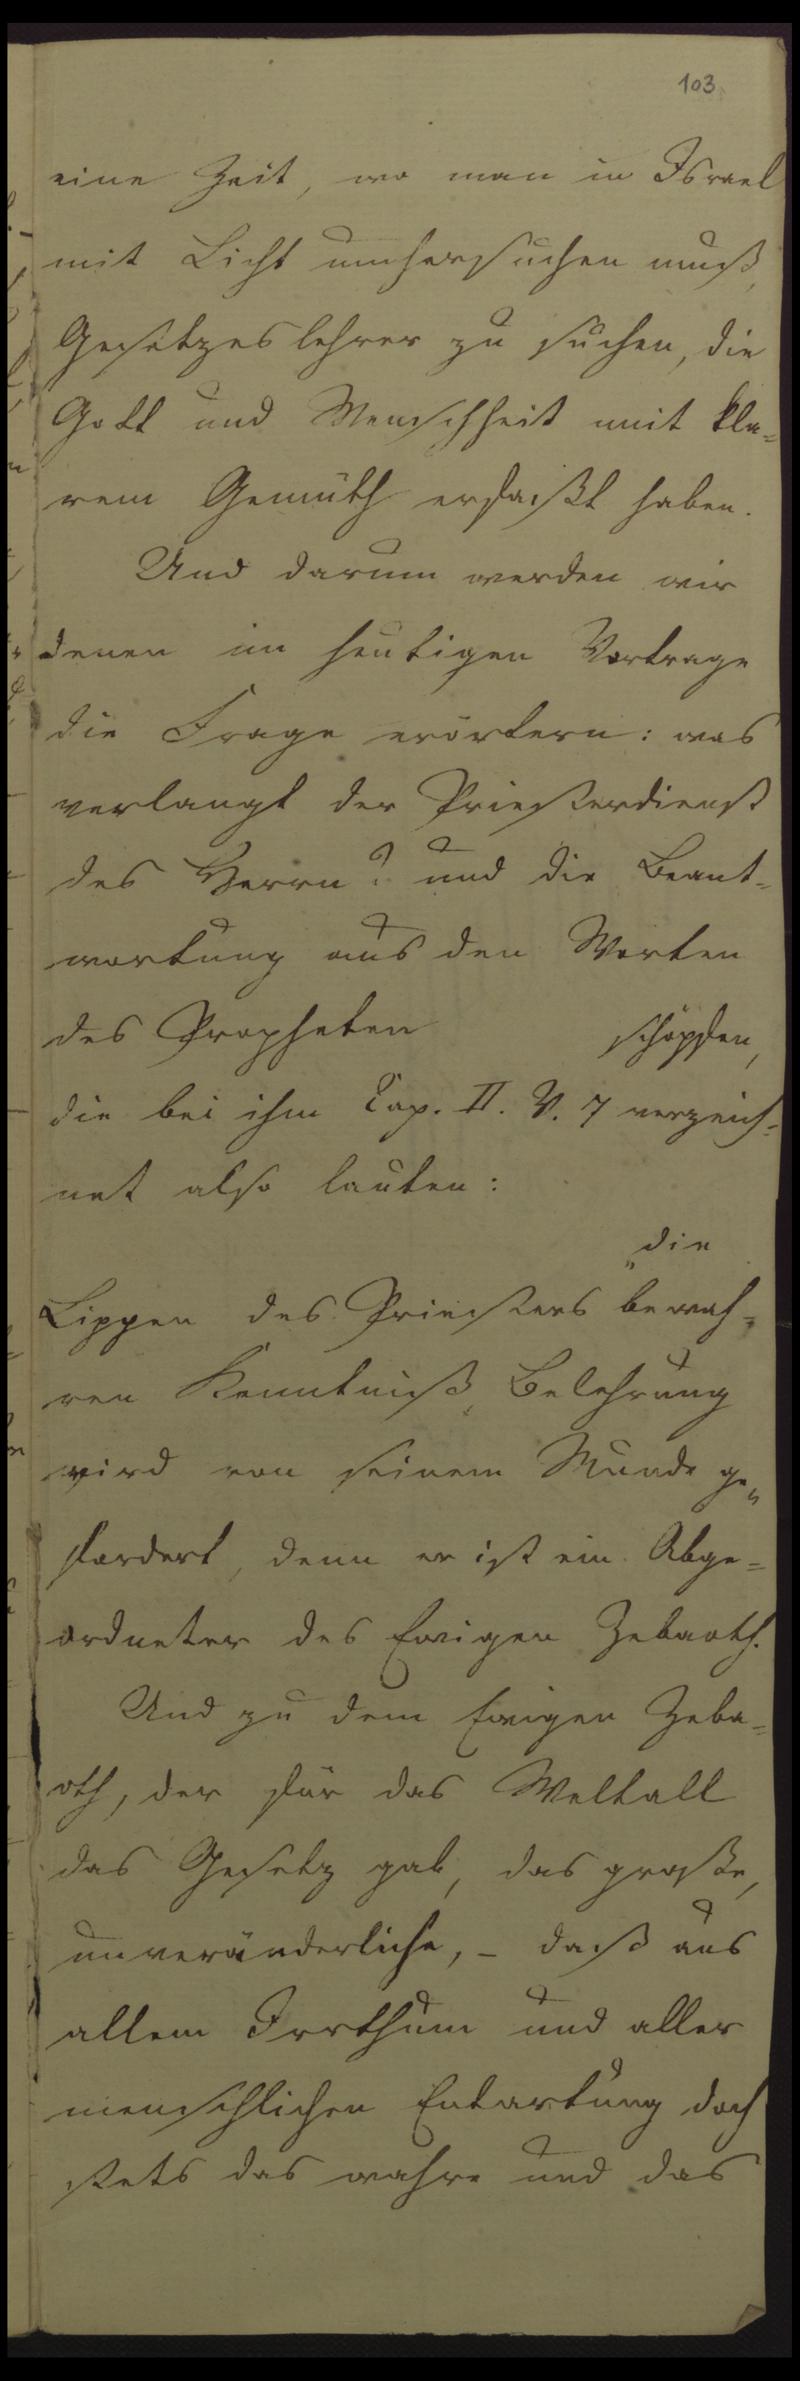 103
eine Zeit, wo man in Israel
mit Licht umhersuchen muß,
Gesetzeslehrer zu suchen, die
Gott und Menschheit mit kla=
rem Gemüth erfaßt haben.
Und darum werden wir
denen im heutigen Vortrage
die Frage erörtern: was
verlangt der Priesterdienst
des Herrn? und die Beant=
wortung aus den Worten
des Propheten schöpfen,
die bei ihm Cap. II. V. 7 verzeich=
net also lauten:
„die
Lippen des Priesters bewah=
ren Kenntniß, Belehrung
wird von seinem Munde ge„
fordert, denn er ist ein Abge=
ordneter des Ewigen Zebaoth.
Und zu dem Ewigen Zeba=
oth, der für das Weltall
das Gesetz gab, das große,
unveränderliche, – daß aus
allem Irrthum und aller
menschlichen Entartung doch
stets das wahre und das